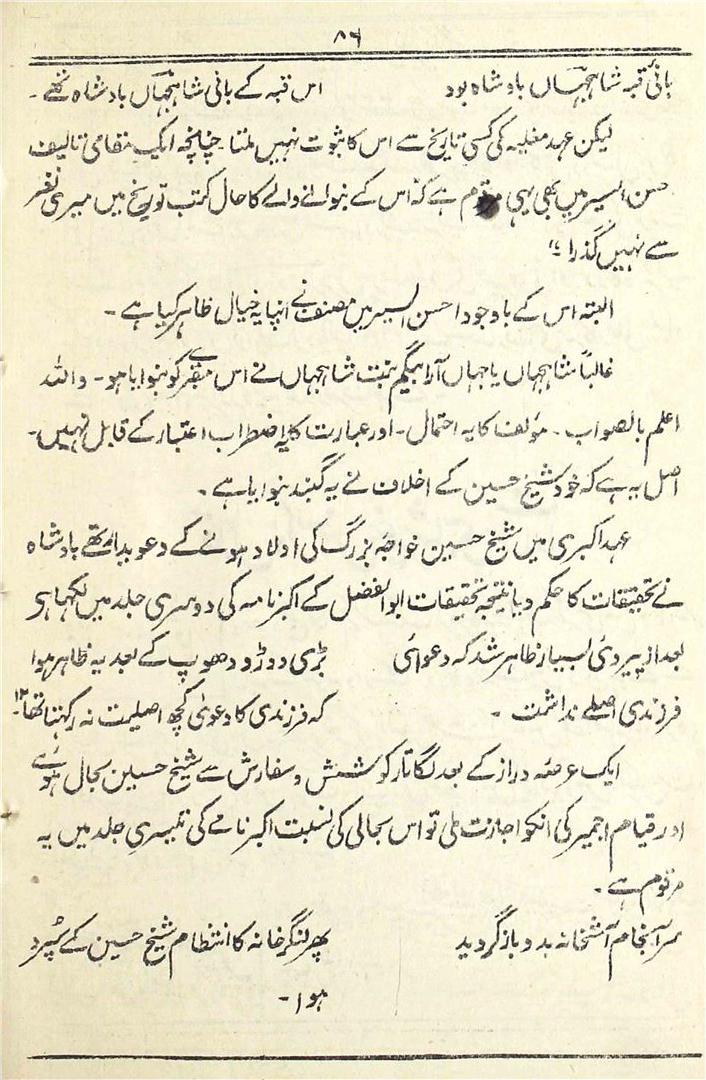 ۸۶
بانیٔ قبہ شاہجہاں بادشاہ بود اس قبہ کے بانی شاہجہاں بادشاہ تھے۔
لیکن عہد مغلیہ کی کسی تاریخ سے اس کا ثبوت نہیں ملتا۔ چنانچہ ایک مقامی تالیف
احسن السیر میں بھی یہی مرقوم ہے کہ اس کے بنوانے والے کا حال کتب تواریخ میں میری نظر
سے نہیں گذرا۔"
البتہ اس کے باوجود احسن السیر میں مصنف نے اپنا یہ خیال ظاہر کیا ہے۔
غالباً شاہجہاں یا جہاں آرا بیگم بنت شاہجہاں نے اس مقبرے کو بنوایا ہو۔ واللہ
اعلم بالصواب۔ مؤلف کا یہ احتمال۔ اور عبارت کا یہ اضطراب اعتبار کے قابل نہیں۔
اصل یہ ہے کہ خود شیخ حسین کے اخلاف نے یہ گنبد بنوایا ہے۔
عہد اکبری میں شیخ حسین خواجہ بزرگ کی اولاد ہونے کے دعویدار تھے بادشاہ
نے تحقیقات کا حکم دیا نتیجہ تحقیقات ابوالفضل کے اکبر نامہ کی دوسری جلد میں لکھا ہے
بعد از پیروئ بسیار ظاہر شد کہ دعوائ بڑی دوڑ و دھوپ کے بعد یہ ظاہر ہوا
فرزندی اصلے نداشت۔ کہ فرزندی کا دعویٰ کچھ اصلیت نہ رکھتا تھا۔۱۲
ایک عرصہ دراز کے بعد لگاتار کوشش و سفارش سے شیخ حسین بحال ہوئے
اور قیام اجمیر کی انکو اجازت ملی تو اس بحالی کی نسبت اکبر نامے کی تیسری جلد میں یہ
مرقوم ہے۔
سرانجام آشخانہ بدو باز گردید پھر لنگر خانہ کا انتظام شیخ حسین کے سُپرد
ہوا۔